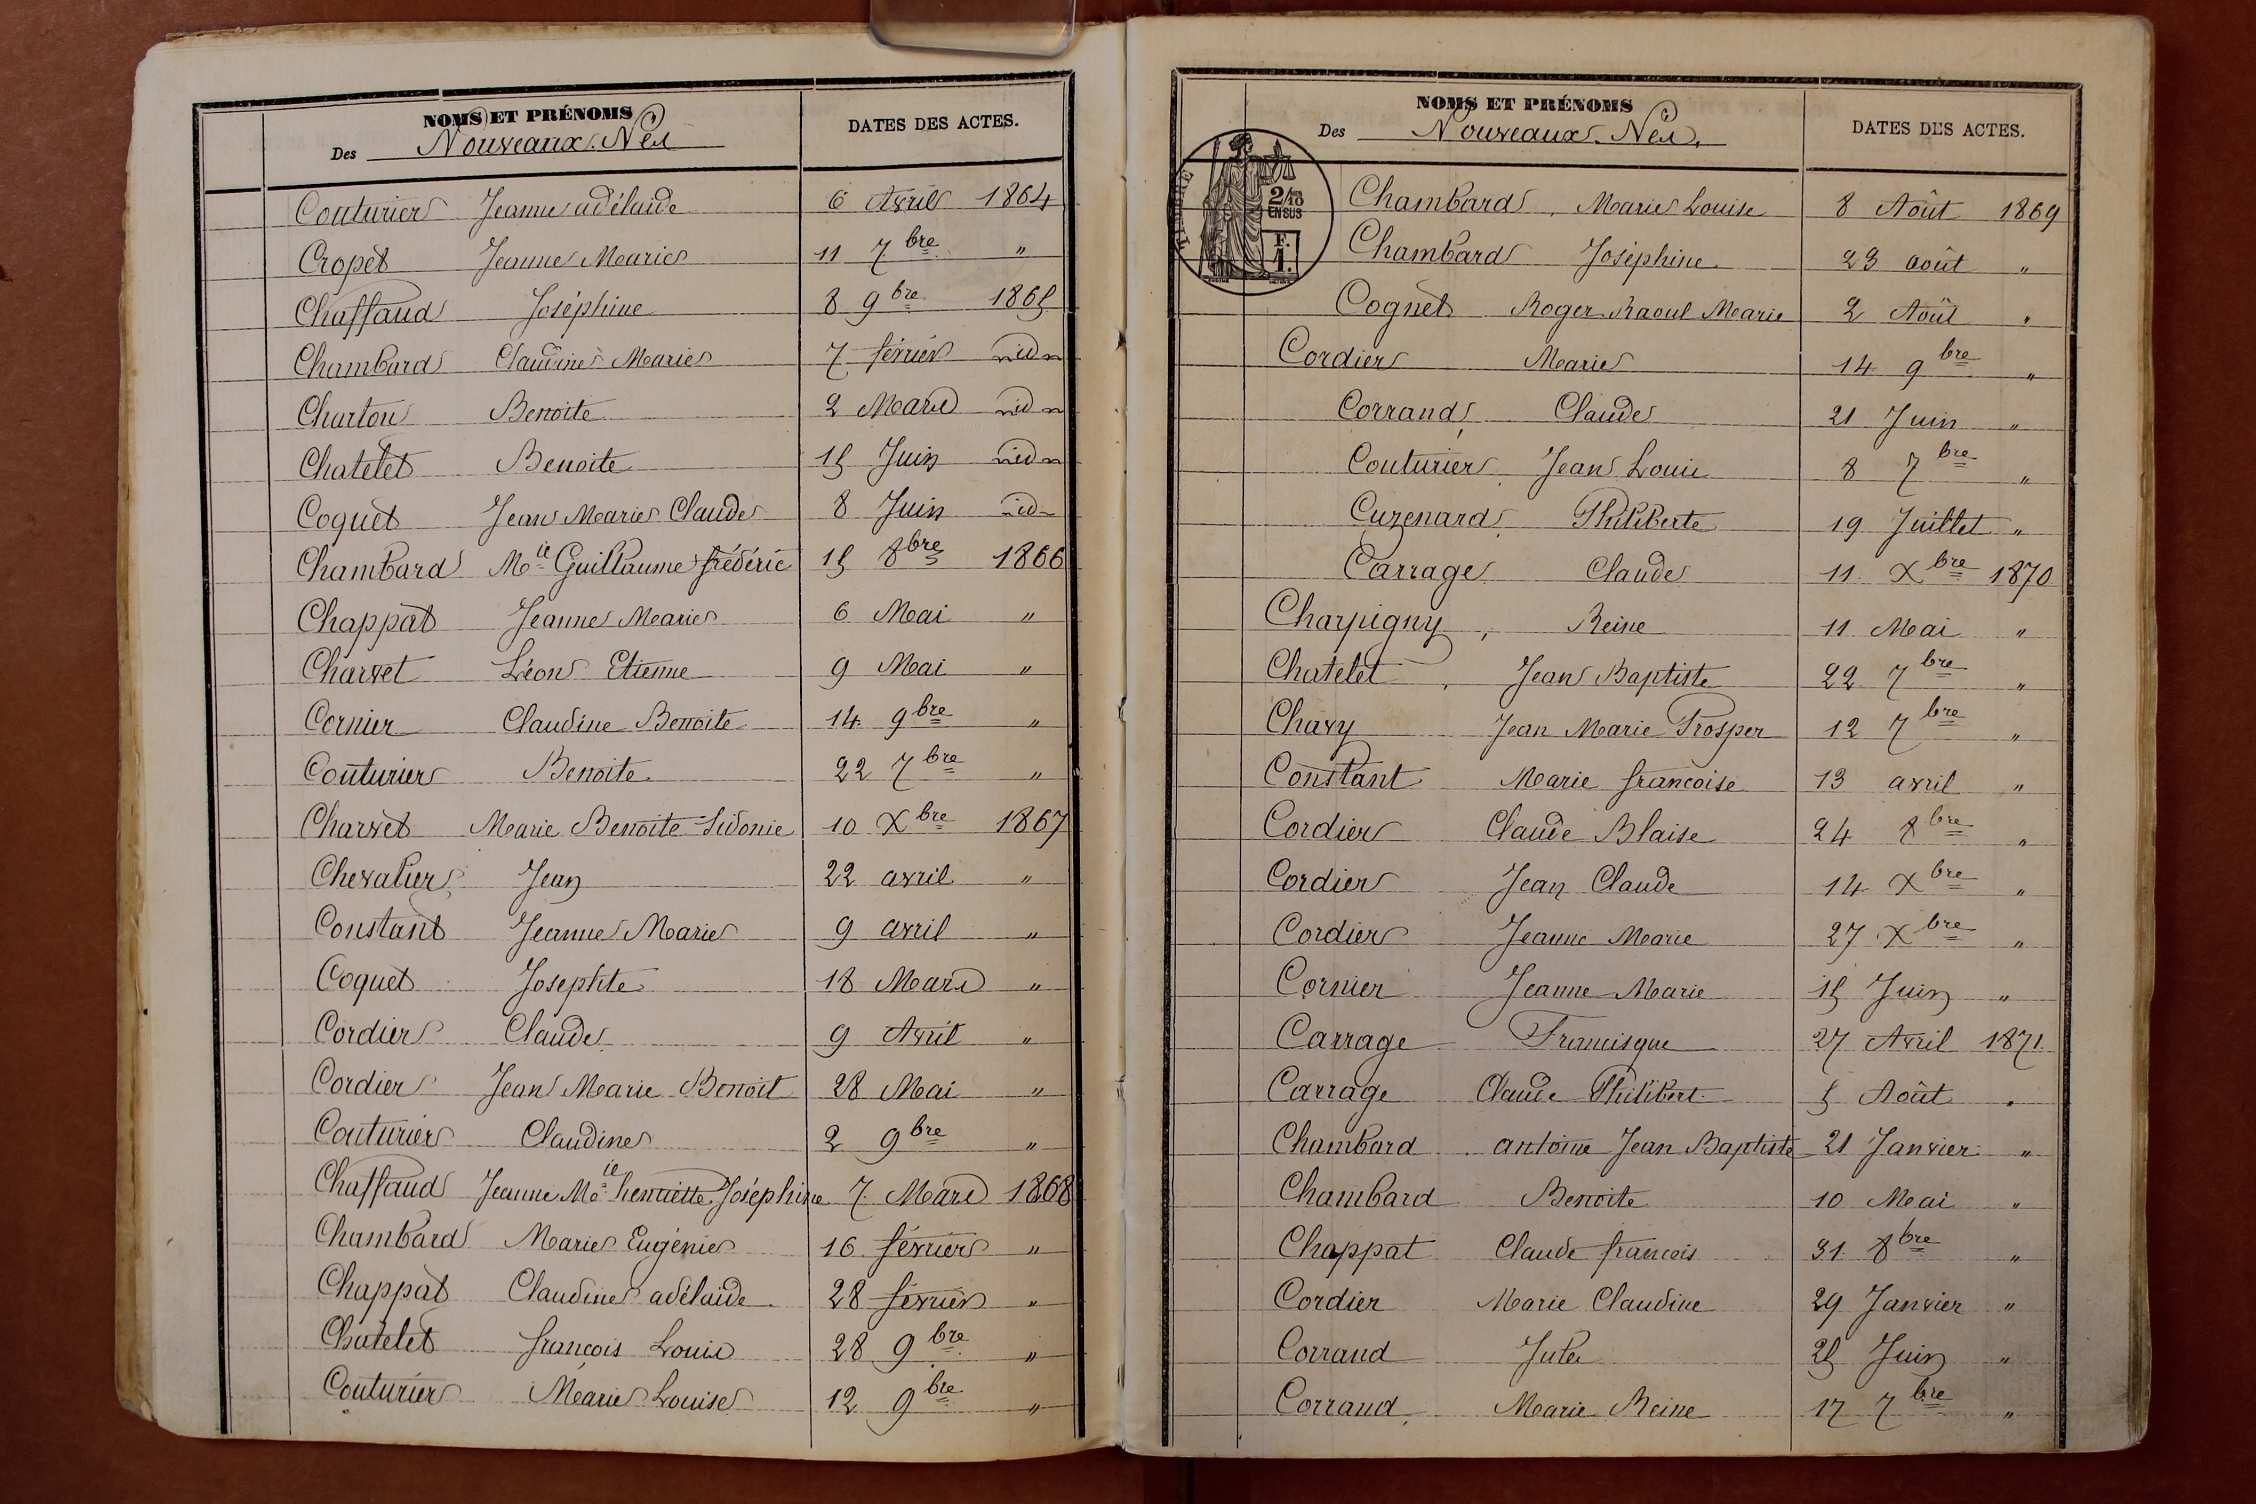 NOMS ET PRÉNOMS
Des Nouveaux Nés
DATES DES ACTES.
Couturier Jeanne adélaide 6 Avril 1864
Cropet Jeanne Marie 11 7bre "
Chaffaud Joséphine 8 9bre 1865
Chambard Claudine Marie 7 février id
Charton Benoite 2 Mars id
Chatelet Benoite 15 Juin id
Coquet Jean Marie Claude 8 Juin id
Chambard Mie Guillaume frédéric 15 8bre 1866
Chappat Jeanne Marie 6 Mai "
Charvet Léon Etienne 9 Mai "
Cornier Claudine Benoite 14 9bre "
Couturier Benoite 22 7bre "
Charvet Marie Benoite Sidonie 10 Xbre 1867
Chevalier Jean 22 avril "
Constant Jeanne Marie 9 avril "
Coquet Josephte 18 Mars "
Cordier Claude 9 Avril "
Cordier Jean Marie Benoit 28 Mai "
Couturier Claudine 2 9bre "
Chaffaud Jeanne Mie henriette Joséphine 7 Mars 1868
Chambard Marie Eugénie 16 février "
Chappat Claudine adélaide 28 février "
Chatelet françois Louis 28 9bre "
Couturier Marie Louise 12 9bre "
NOMS ET PRÉNOMS
Des Nouveaux Nés.
DATES DES ACTES.
TIMBRE
2/10 EN SUS
F. 1.
Chambard Marie Louise 8 Août 1869
Chambard Joséphine 23 août "
Cognet Roger Raoul Marie 2 Août "
Cordier Marie 14 9bre "
Corrand Claude 21 Juin "
Couturier Jean Louis 8 7bre "
Cuzenard Philiberte 19 Juillet "
Carrage Claude 11 Xbre 1870
Charpigny Reine 11 Mai "
Chatelet Jean Baptiste 22 7bre "
Chavy Jean Marie Prosper 12 7bre "
Constant Marie francoise 13 avril "
Cordier Claude Blaise 24 8bre "
Cordier Jean Claude 14 Xbre "
Cordier Jeanne Marie 27 Xbre "
Cornier Jeanne Marie 15 Juin "
Carrage Francisque 27 Avril 1871
Carrage Claude Philibert 5 Août "
Chambard antoine Jean Baptiste 21 Janvier "
Chambard Benoite 10 Mai "
Chappat Claude francois 31 8bre "
Cordier Marie Claudine 29 Janvier "
Corrand Jules 25 Juin "
Corrand Marie Reine 17 7bre "